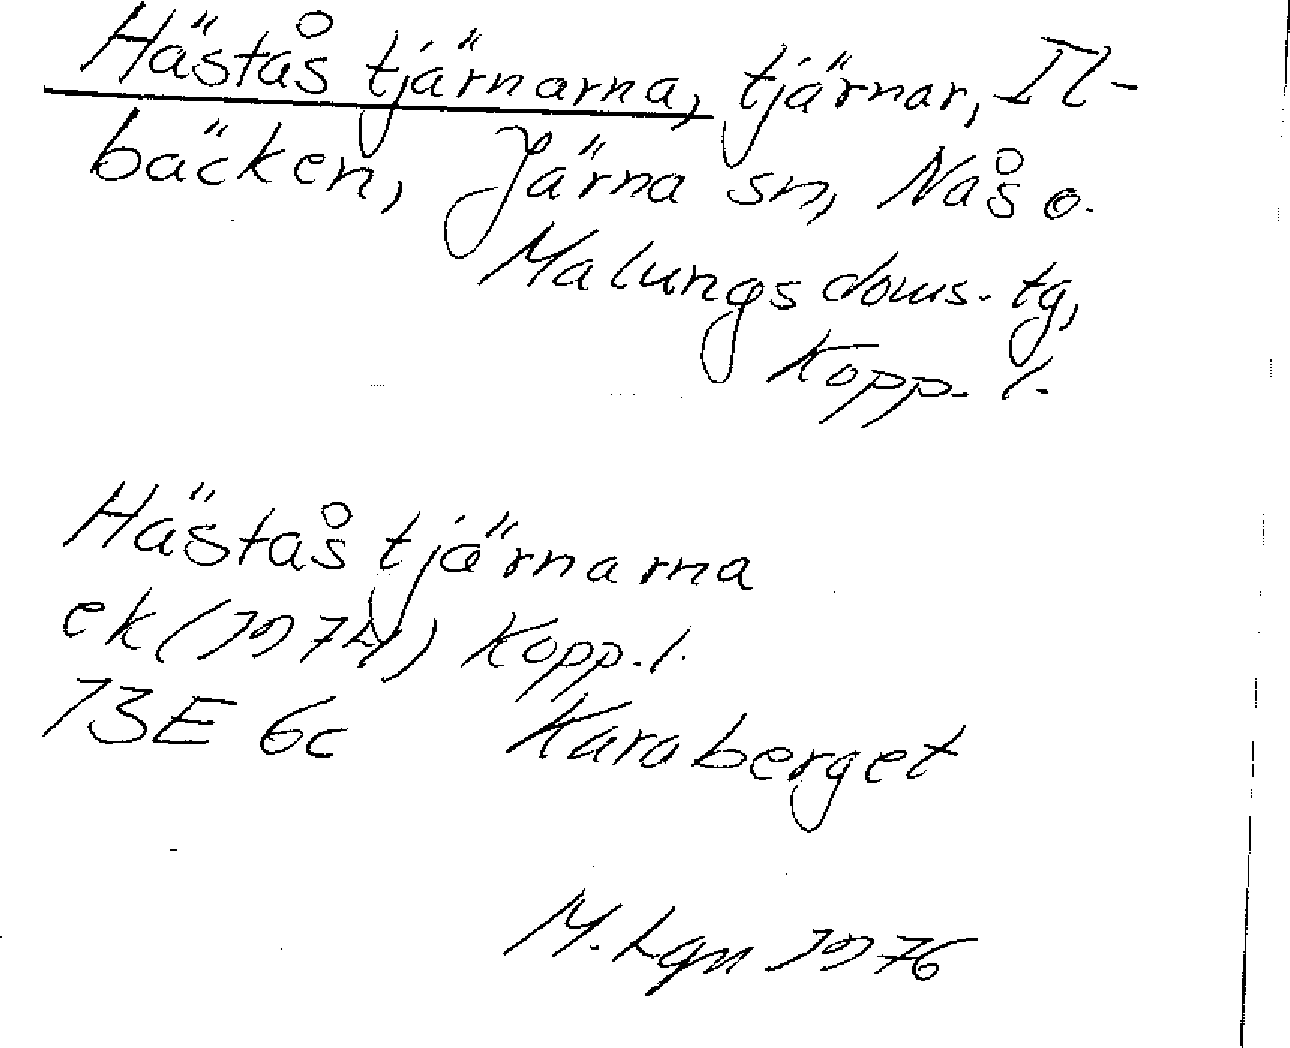 Hästås tjärnarna, tjärnar, Il-
bäcken, Järna sn, Nås o.
Malungs doms. tg,
Kopp. l.
Hästås tjärnarna
ek (1974) Kopp. l.
13E 6c Karaberget
M. Lgn 1976